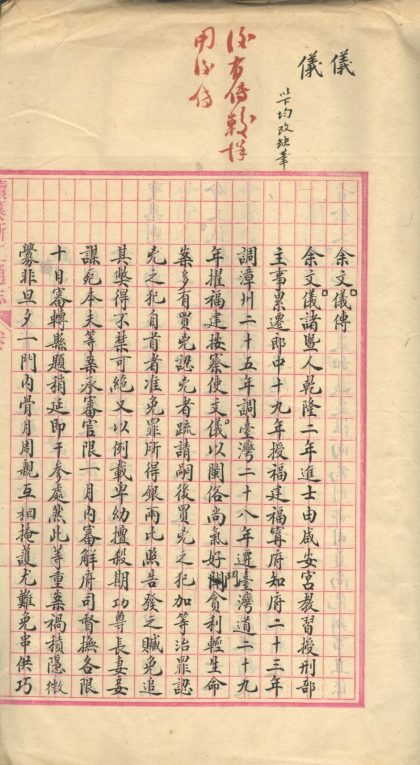 儀
儀
以下均改缺筆
後有傳較詳
用後傳
余文儀傳
余文儀諸暨人乾隆二年進士由咸安宮教習授刑部
主事累遷郎中十九年授福建福寧府知府二十三年
調漳州二十五年調臺灣二十八年遷臺灣道二十九
年擢福建按察使文儀以閩俗尚氣好鬬貪利輕生命
案多有買兇認兇者疏請嗣後買兇之犯加等治罪認
兇之犯自首者准免罪所得銀兩比照告發之贓免追
其獘得不禁可絕又以例載卑幼擅殺期功尊長妻妾
謀死本夫等案承審官限一月內審解府司督撫各限
十日審轉暨題稍延即干參處然此等重案禍積隱微
釁非旦夕一門內骨月周親互相掩護尤難免串供巧